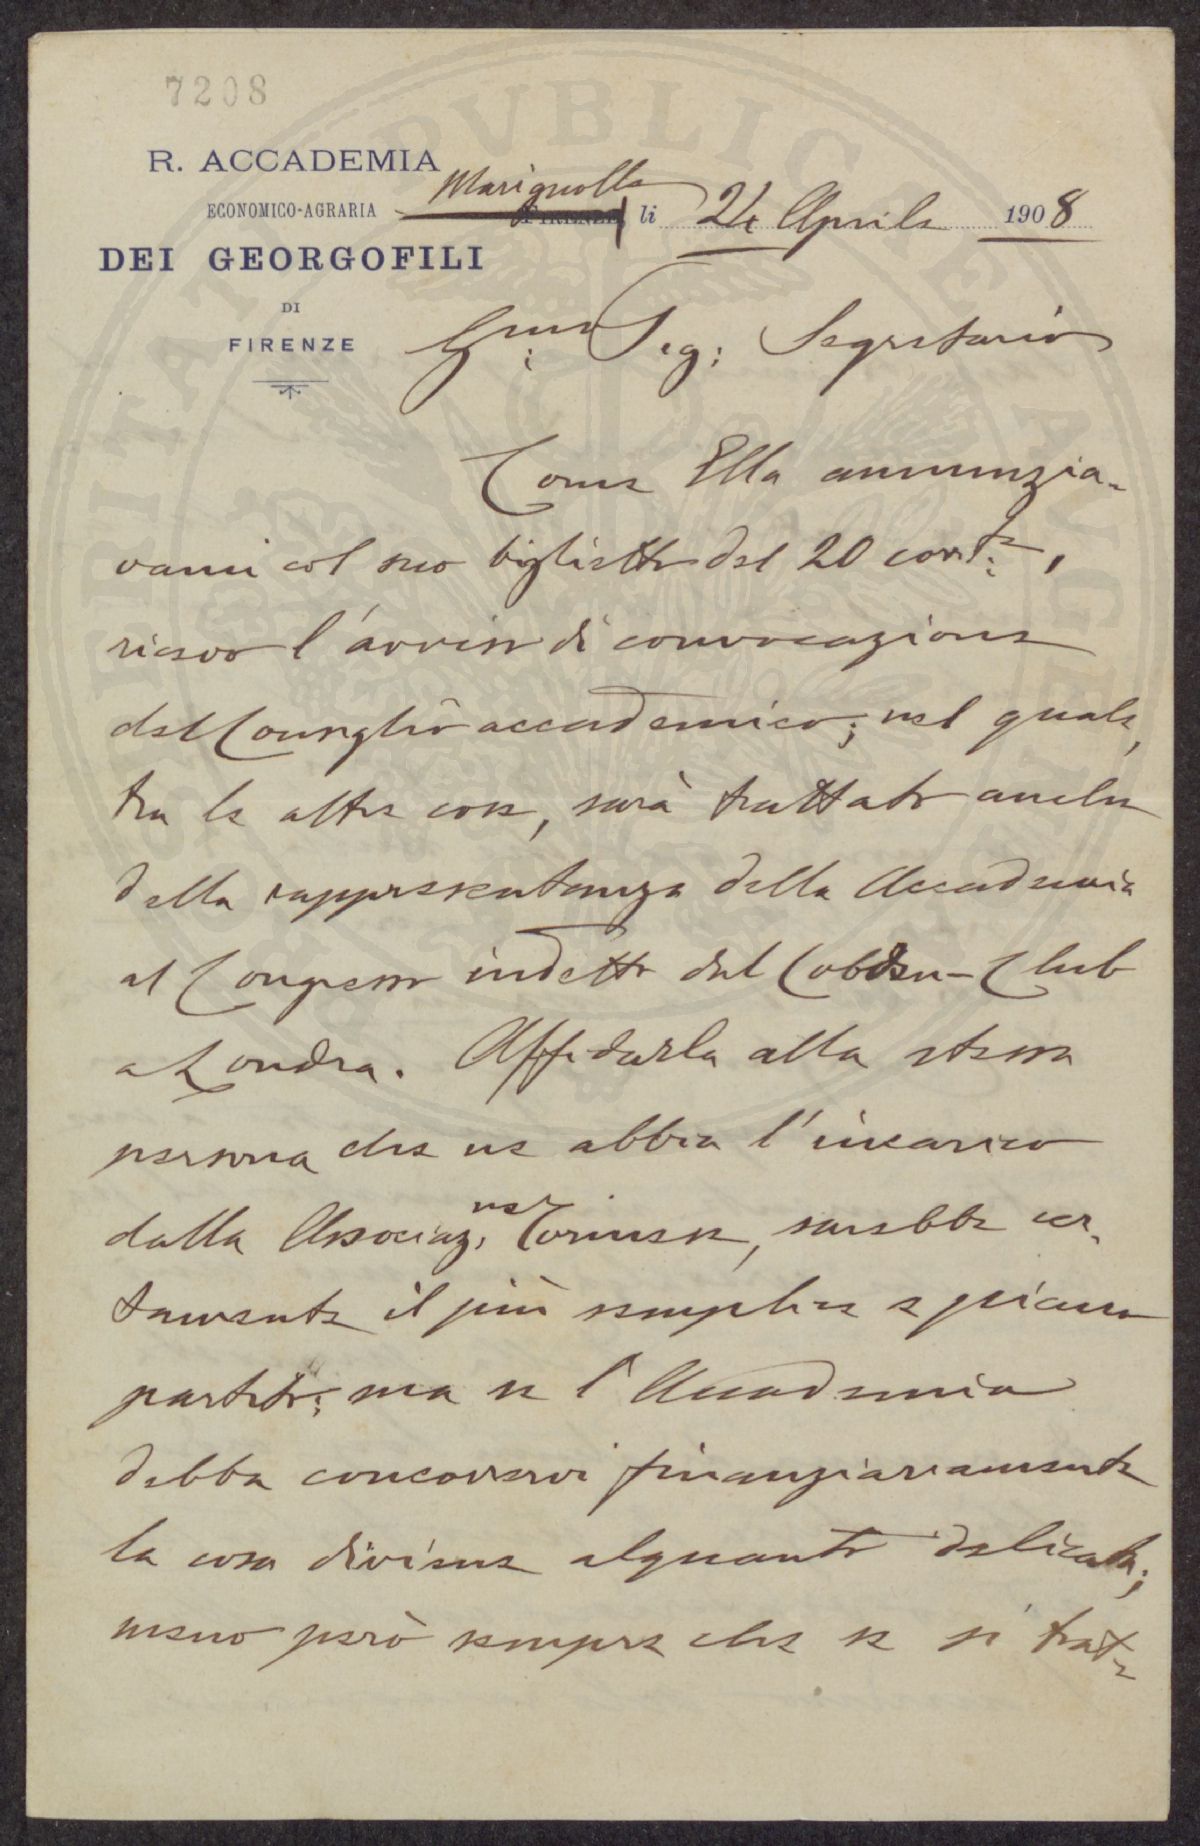 7208
R. ACCADEMIA
ECONOMICO-AGRARIA
DEI GEORGOFILI
DI
FIRENZE
Marignolle
FIRENZE, li 24 Aprile 1908
Sig: Segretario
Come Ella annunzia-
vami col suo biglietto del 20 corr.te,
ricevo l'avviso di convocazione
del Consiglio accademico; nel quale,
tra le altre cose, sarà trattato anche
della rappresentanza della Accademia
al Congresso indetto dal Cobden-Club
a Londra. Affidarla alla stessa
persona che ne abbia l'incarico
dalla Associaz.ne Torinese, sarebbe cer-
tamente il più semplice e piano
partito; ma se l'Accademia
debba concorrervi finanziariamente
la cosa diviene alquanto delicata;
meno però sempre che se si trat-
PUBLICAE
PROSPERITATI
AUGENDAE